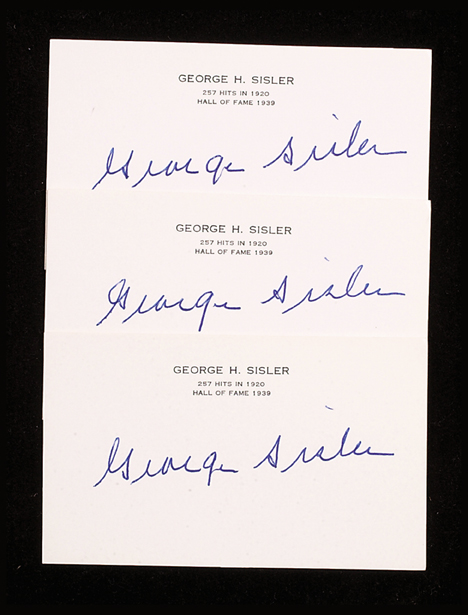 GEORGE H. SISLER
257 HITS IN 1920
HALL OF FAME 1939
George Sisler
GEORGE H. SISLER
257 HITS IN 1920
HALL OF FAME 1939
George Sisler
GEORGE H. SISLER
257 HITS IN 1920
HALL OF FAME 1939
George Sisler